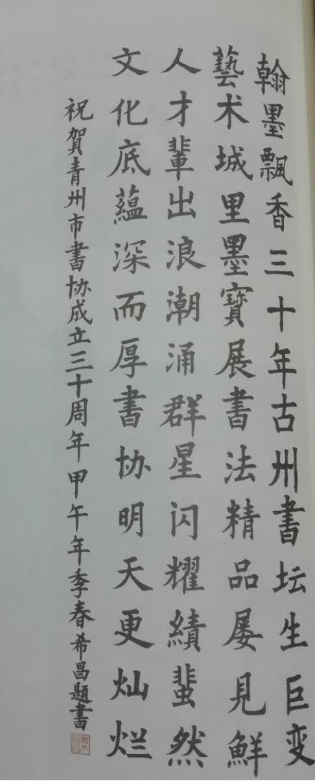 翰墨飄香三十年古州書坛生巨变
藝术城里墨寶展書法精品屡見鮮
人才輩出浪潮涌群星闪耀績蜚然
文化底蕴深而厚書协明天更灿烂
祝賀青州市書协成立三十周年甲午年季春希昌题書